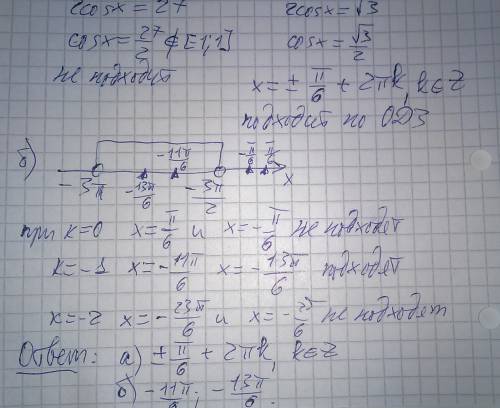 2cosx = 27    2cosx = √3
cosx = 27/2 ∉ [-1;1]    cosx = √3/2
не подходит    x = ± π/6 + 2πk, k∈Z
подходит по ОДЗ
б)
-3π  -13π/6  -11π/6  -3π/2  -π/6  π/6  x
при k=0  x = π/6 и x = -π/6 не подходят
k=-1  x = -11π/6  x = -13π/6 подходят
k=-2  x = -23π/6 и x = -25π/6 не подходят
Ответ: а) ± π/6 + 2πk, k∈Z
б) -11π/6; -13π/6.